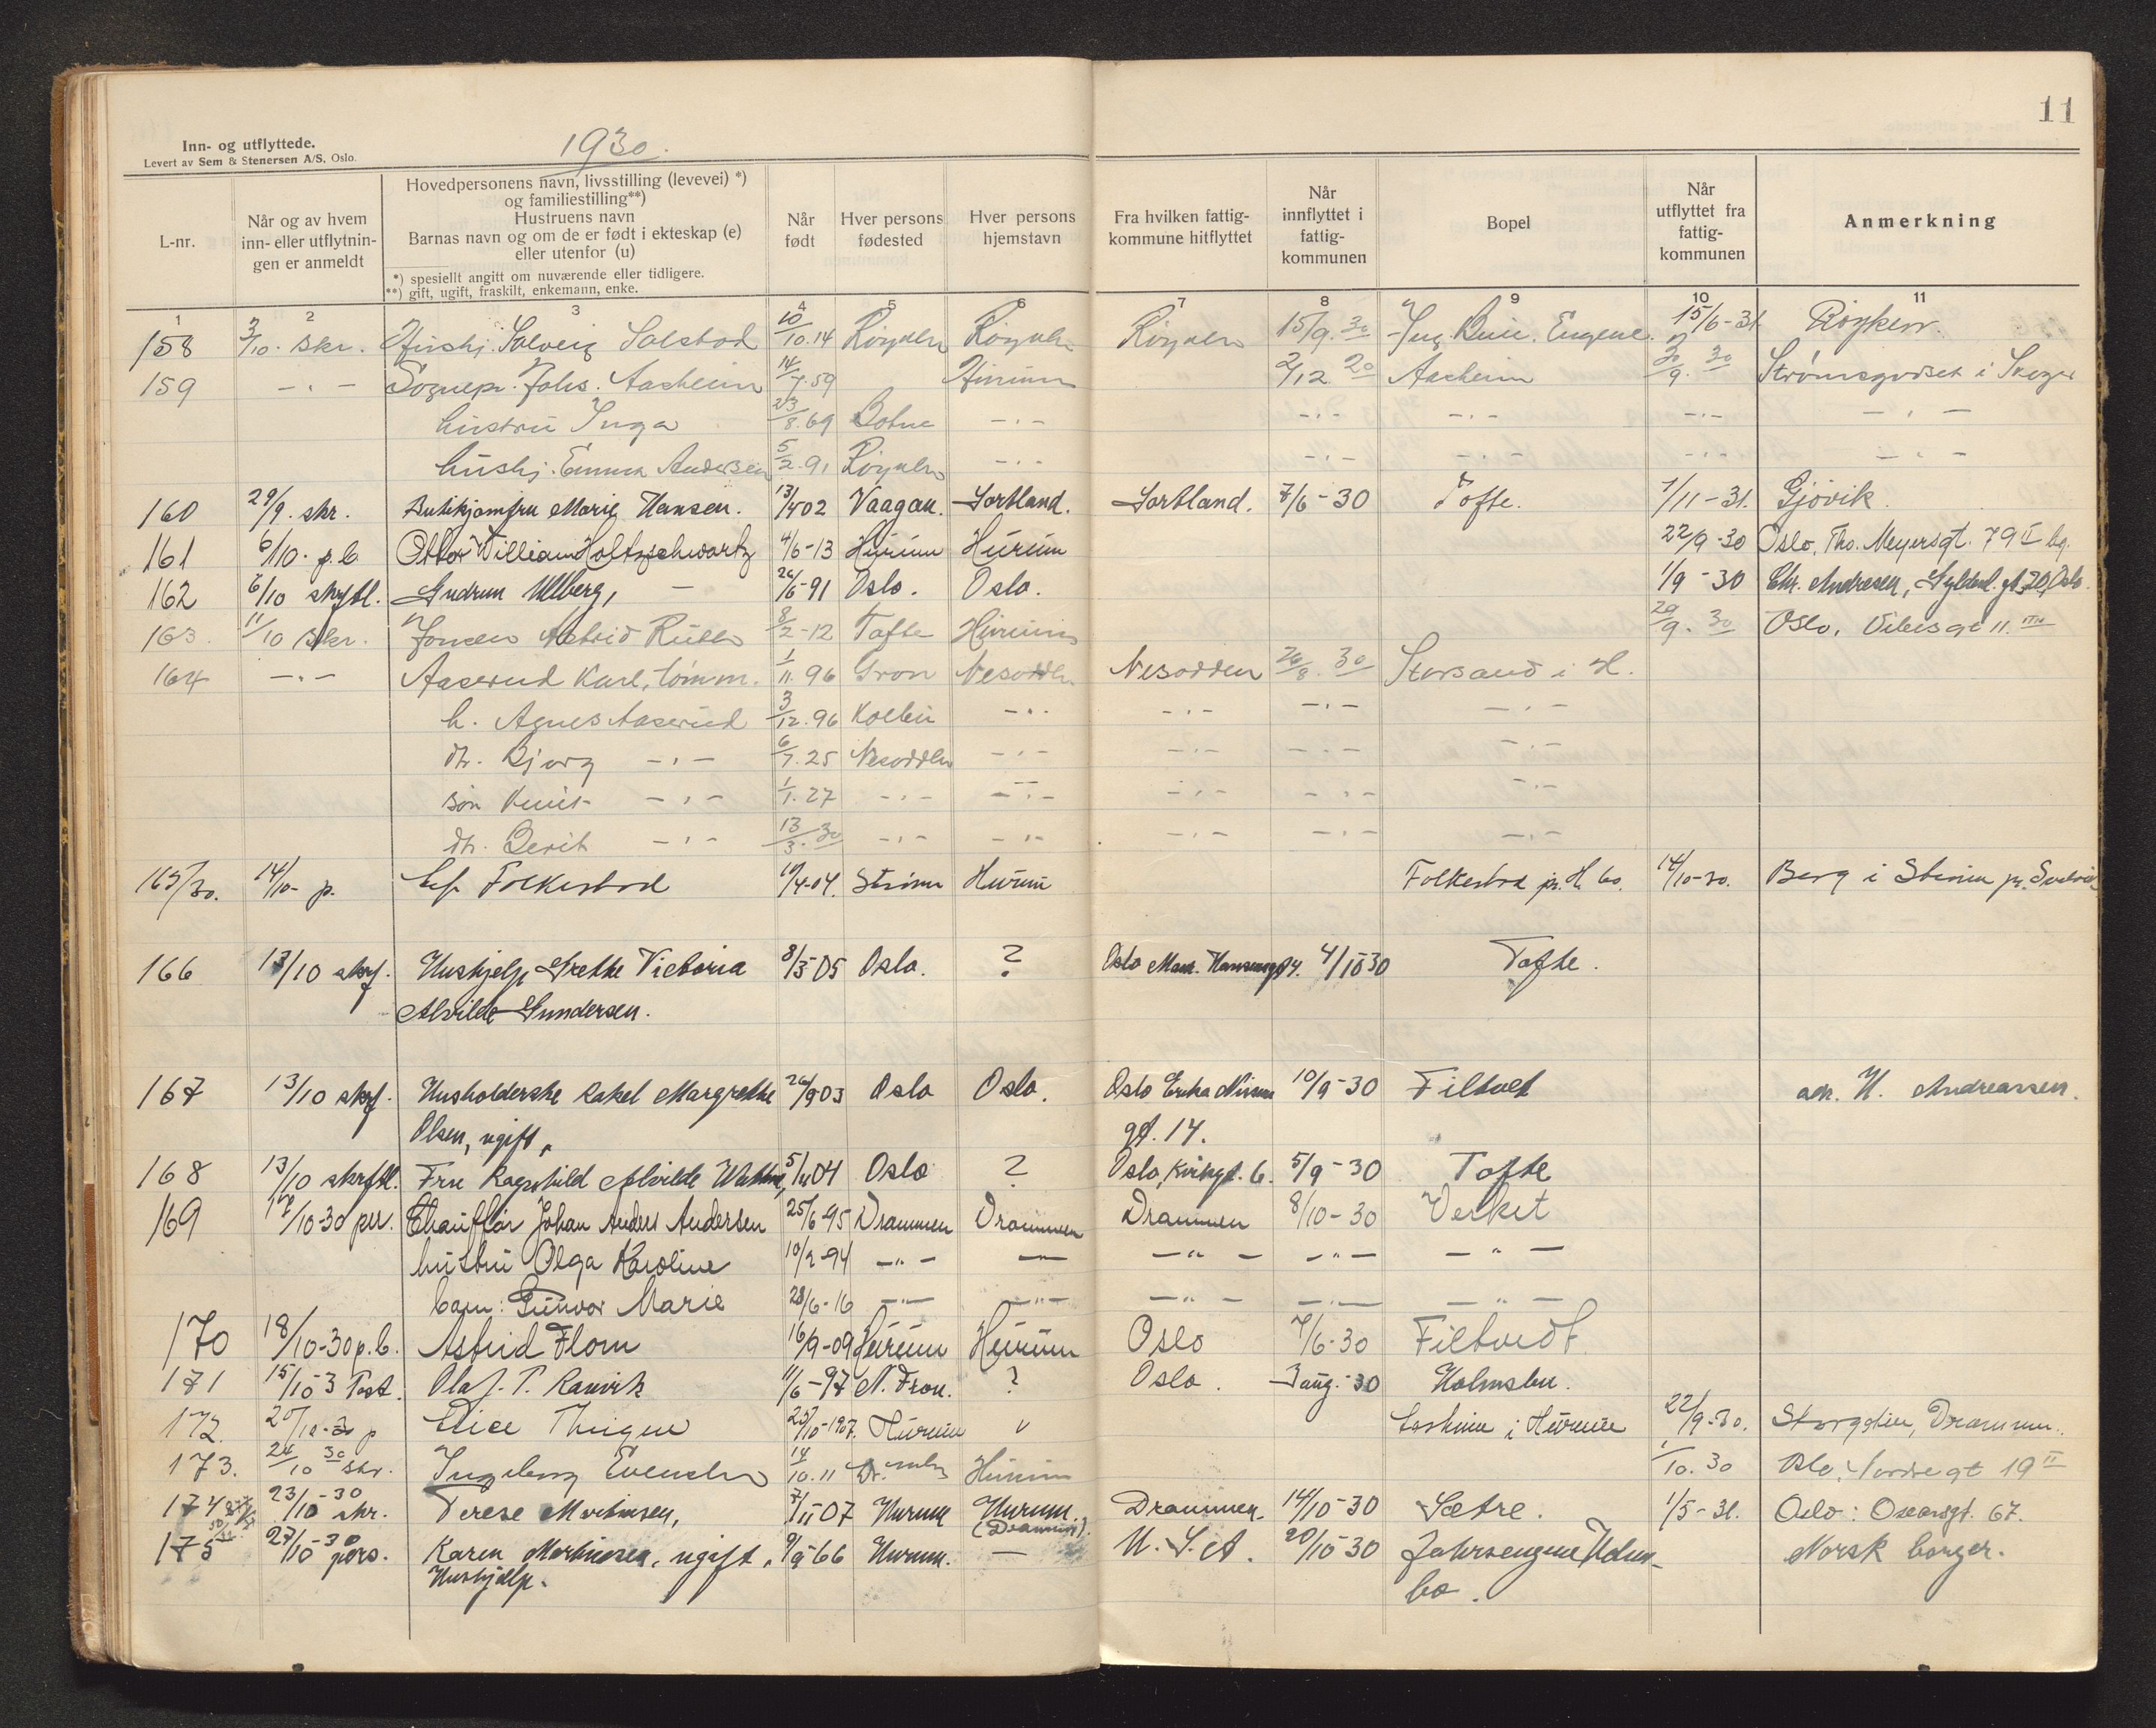 11
Inn- og utflyttede.
Levert av Sem & Stenersen A/S, Oslo.
1930.
L-nr.
Når og av hvem inn- eller utflytnin- gen er anmeldt
Hovedpersonens navn, livsstilling (levevei) *)
og familiestilling**)
Hustruens navn
Barnas navn og om de er født i ekteskap (e)
eller utenfor (u)
*) spesiellt angitt om nuværende eller tidligere.
**) gift, ugift, fraskilt, enkemann, enke.
Når født
Hver persons fødested
Hver persons hjemstavn
Fra hvilken fattig- kommune hitflyttet
Når innflyttet i fattig- kommunen
Bopel
Når utflyttet fra fattig- kommunen
Anmerkning
1 2 3 4 5 6 7 8 9 10 11
158 3/10. skr. Hushj. Solveig Solstad 10/10.14 Røyken Røyken Røyken 15/9. 30 Eugene. 15/6-31 Røyken.
159 -"- Sognepr. Johs. Aasheim 14/7.59 Hurum 2/12 20 Aasheim 30/9. 30 Strømsgodset i Skoger
hustru Inga 23/8.69 Botne -"- -"- -"- -"- -"-
hushj. Emma Andersen 5/2.91 Røyken -"- -"- -"- -"- -"-
160 29/9. skr. Butikjomfru Marie Hansen. 13/4 02 Vaagan. Sortland. Sortland. 7/6-30 Tofte. 1/11-31. Gjøvik.
161 6/10. p.b. Ottor William Holtzschwartz 4/6-13 Hurum Hurum 22/9-30 Oslo, Tho. Meyersgt. 79 II bg.
162 6/10 skrftl. Gudrun Ullberg, - 26/6-91 Oslo. Oslo. 1/9-30 Chr. Andresen, Gyldenl. gt. 20, Oslo.
163. 11/10 skr. Jonsen Astrid Ruth 8/2-12 Tofte Hurum 29/9. 30 Oslo, Vibesgt 11. III
164 -"- Aaserud Karl, tømm. 1/11.96 Gran Nesodden Nesodden 26/8. 30 Storsand i H.
h. Agnes Aaserud 3/12.96 Kolbu -"- -"- -"- -"-
dtr. Bjørg -"- 6/7.25 Nesodden -"- -"- -"- -"-
søn Knut -"- 1/1.27 -"- -"- -"- -"- -"-
dtr. Berit -"- 13/3. 30 -"- -"- -"- -"- -"-
165/30. 14/10- p. Folkestad 10/4-04. Strøm Hurum Folkestad pr. H. bo. 14/10-30. Berg i Strøm pr. Svelvik
166 13/10 skrf. Hushjelp Grethe Victoria 8/3-05 Oslo. ? Oslo Mar. Hansensgt 4. 4/10 30 Tofte.
Alvilde Gundersen.
167 13/10 skrf. Husholderske Rakel Margrethe 26/9 03 Oslo Oslo. Oslo Erika Nissens 10/9-30 Filtvet adr. H. Andreassen.
Olsen, ugift, gt. 14.
168 13/10 skrftl. Fru Ragnhild Alvilde 5/11 04 Oslo ? Oslo, Kirkegt. 6. 5/9-30 Tofte
169 17/10-30 per. Chauffør Johan Anders Andersen 25/6-95 Drammen Drammen Drammen 8/10-30 Verket
hustru Olga Karoline 10/2-94 -"- - -"- -"- -"-
barn: Gunvor Marie 28/6-16 -"- -"- -"- -"- -"-
170 18/10-30 p.b. Astrid Flom 16/9-09 Hurum Hurum Oslo 7/6-30 Filtvedt
171 15/10-3 Post. Olaf. T. Ranvik 11/6-97 N. Fron. ? Oslo. 3 aug.-30 Holmsbu.
172. 20/10-30 p Elice 25/10-1907. Hurum " i Hurum 22/9-30. Storgaten, Drammen.
173. 24/10 30 skr. Ingeborg Evensen 14/10.11 Hurum 1/10.30 Oslo, Nordregt 19 II
174 23/10-30 skr. Terese Martinsen, 7/11 07 Hurum Hurum. Drammen. 14/10-30 Sætre. 1/5-31. Oslo: Oscarsgt. 67.
(Drammen).
175 27/10-30 pers. Karen Martinsen, ugift, 9/9-66 Hurum. - U.S.A. 20/10-30 Norsk borger.
Hushjelp. bo.